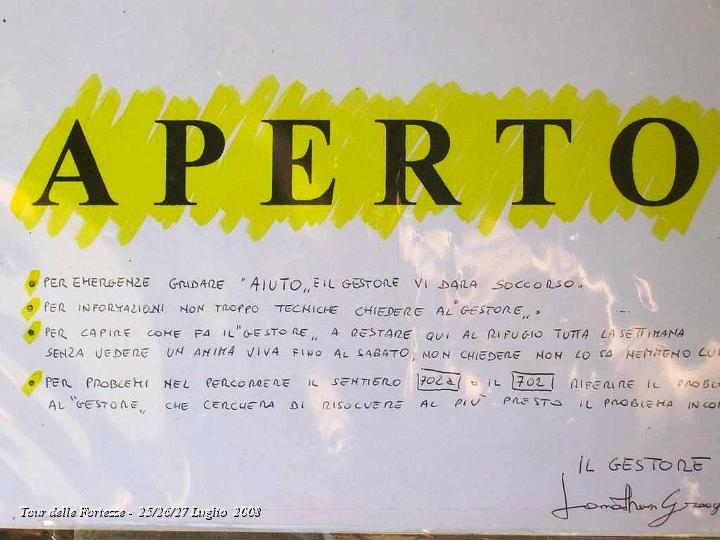 APERTO
PER EMERGENZE GRIDARE "AIUTO,, E IL GESTORE VI DARA SOCCORSO.
PER INFORMAZIONI NON TROPPO TECNICHE CHIEDERE AL "GESTORE,,.
PER CAPIRE COME FA IL "GESTORE,, A RESTARE QUI AL RIFUGIO TUTTA LA SETTIMANA
SENZA VEDERE UN ANIMA VIVA FINO AL SABATO, NON CHIEDERE NON LO SA NEMMENO LUI
PER PROBLEMI NEL PERCORRERE IL SENTIERO 702a O IL 702 RIFERIRE IL PROBL
AL "GESTORE,, CHE CERCHERA DI RISOLVERE AL PIU' PRESTO IL PROBLEMA INCO
IL GESTORE
Jonathan
Tour delle Fortezze - 25/26/27 Luglio 2008